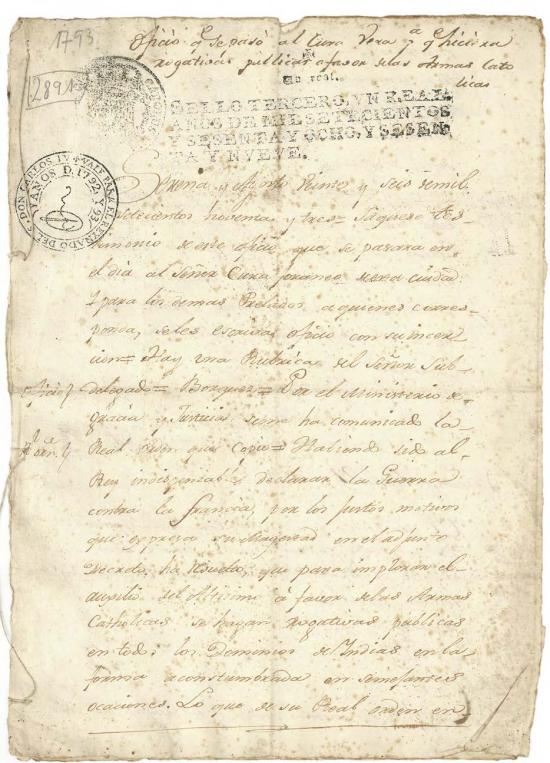 1793
2891
Oficio q.e se pasó al Cura Vic.o p.a q.e hiciera
rogativas publicas a favor de las Armas Cato
licas
Un real.
SELLO TERCERO, VN REAL
AÑOS DE MIL SETECIENTOS
Y SESENTA Y OCHO, Y SESEN
TA Y NVEVE.
DON CARLOS IV VALE PARA EL REYNADO DE S.
AÑOS D. 1792. Y 93
y Agosto Primero y seis de mil
setecientos noventa y tres= Saquese tes-
timonio de este oficio que se pasara en
el dia al Señor Cura foraneo de esta ciudad
y para los demas Prelados a quienes corres-
ponda, se les escriba oficio con su incer
cion= Hay una Rubrica del Señor Sub-
oficio delegado= Borquez= Por el Ministerio de
gracia y Justicia se me ha comunicado la
R.l orn. Real orden que copio= Haviendo sido al
Rey indispensable declarar la Guerra
contra la francia, por los justos motivos
que expresa su Magestad en el adjunto
Decreto, ha resuelto, que para implorar el
auxilio del Altisimo á favor de las Armas
Catholicas se hagan rogativas publicas
en todos los Dominios de Indias en la
forma acostumbrada en semejantes
ocaciones. Lo que de su Real orden en